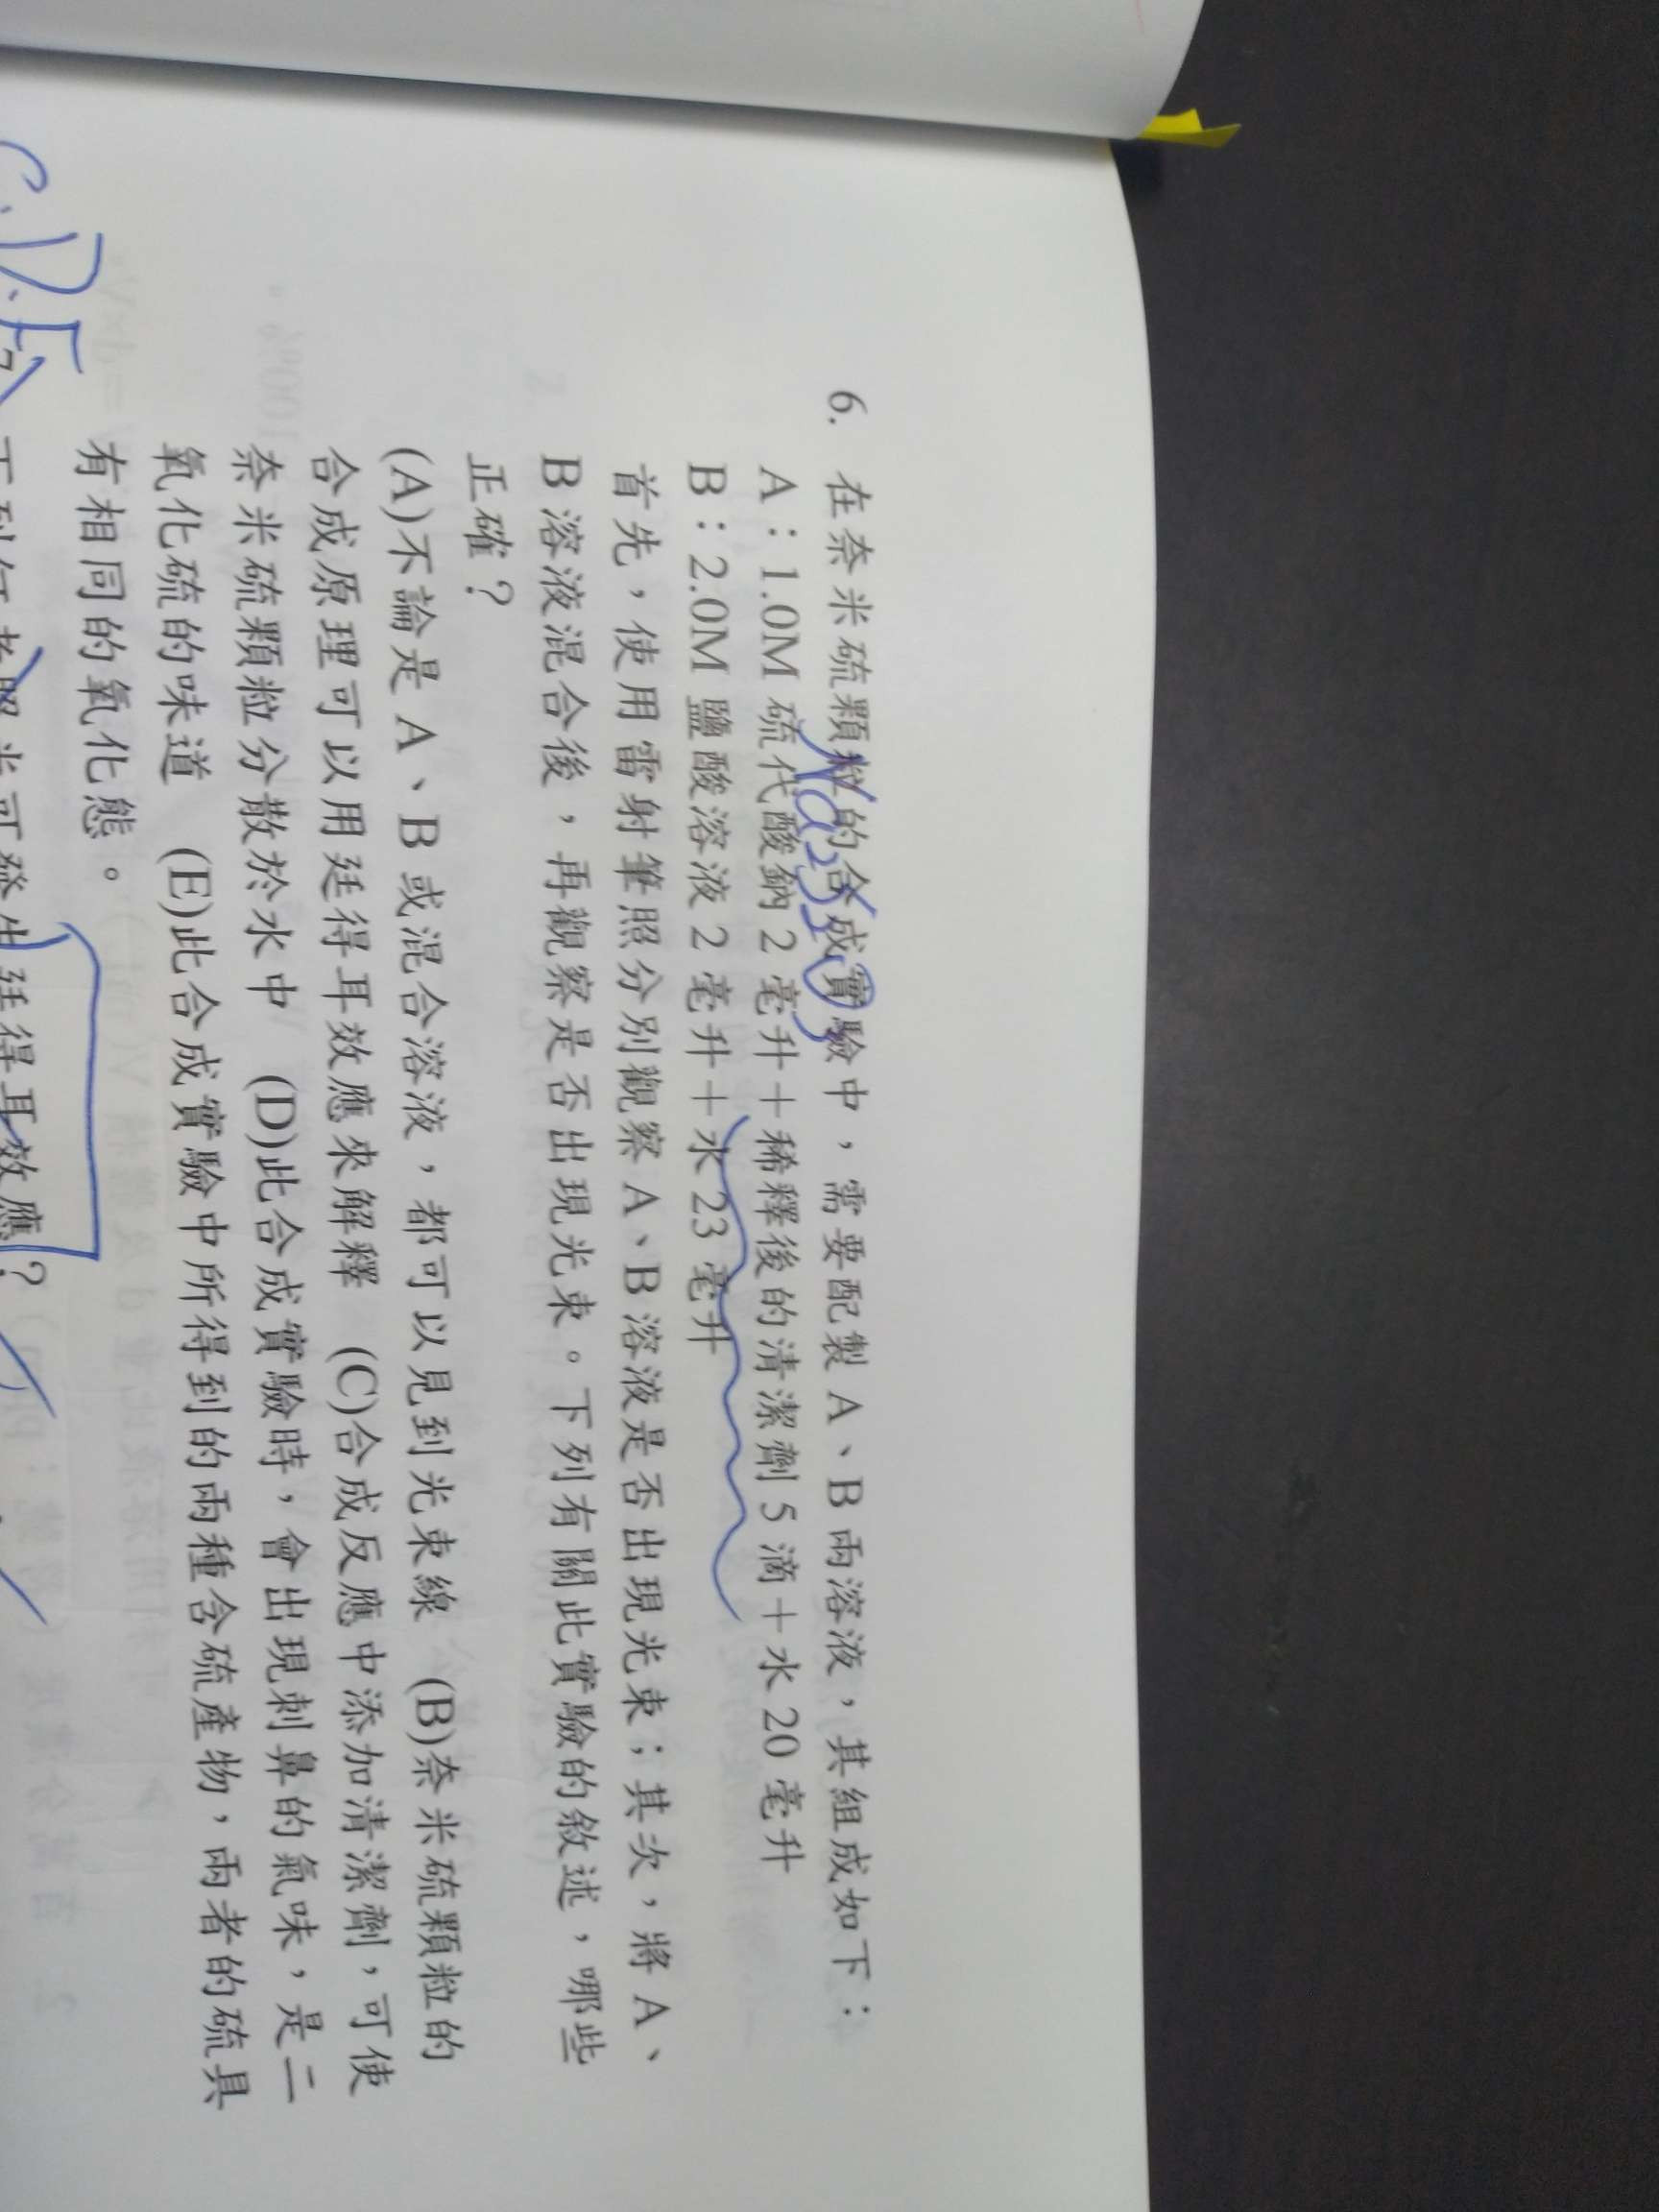 6. 在奈米硫顆粒的合成實驗中，需要配製 A、B 兩溶液，其組成如下：
A：1.0M 硫代酸鈉 2 毫升＋稀釋後的清潔劑 5 滴＋水 20 毫升
B：2.0M 鹽酸溶液 2 毫升＋水 23 毫升
首先，使用雷射筆照分別觀察 A、B 溶液是否出現光束；其次，將 A、
B 溶液混合後，再觀察是否出現光束。下列有關此實驗的敘述，哪些
正確？
(A)不論是 A、B 或混合溶液，都可以見到光束線 (B)奈米硫顆粒的
合成原理可以用廷得耳效應來解釋 (C)合成反應中添加清潔劑，可使
奈米硫顆粒分散於水中 (D)此合成實驗時，會出現刺鼻的氣味，是二
氧化硫的味道 (E)此合成實驗中所得到的兩種含硫產物，兩者的硫具
有相同的氧化態。
C.D.E
可發生廷得耳效應？